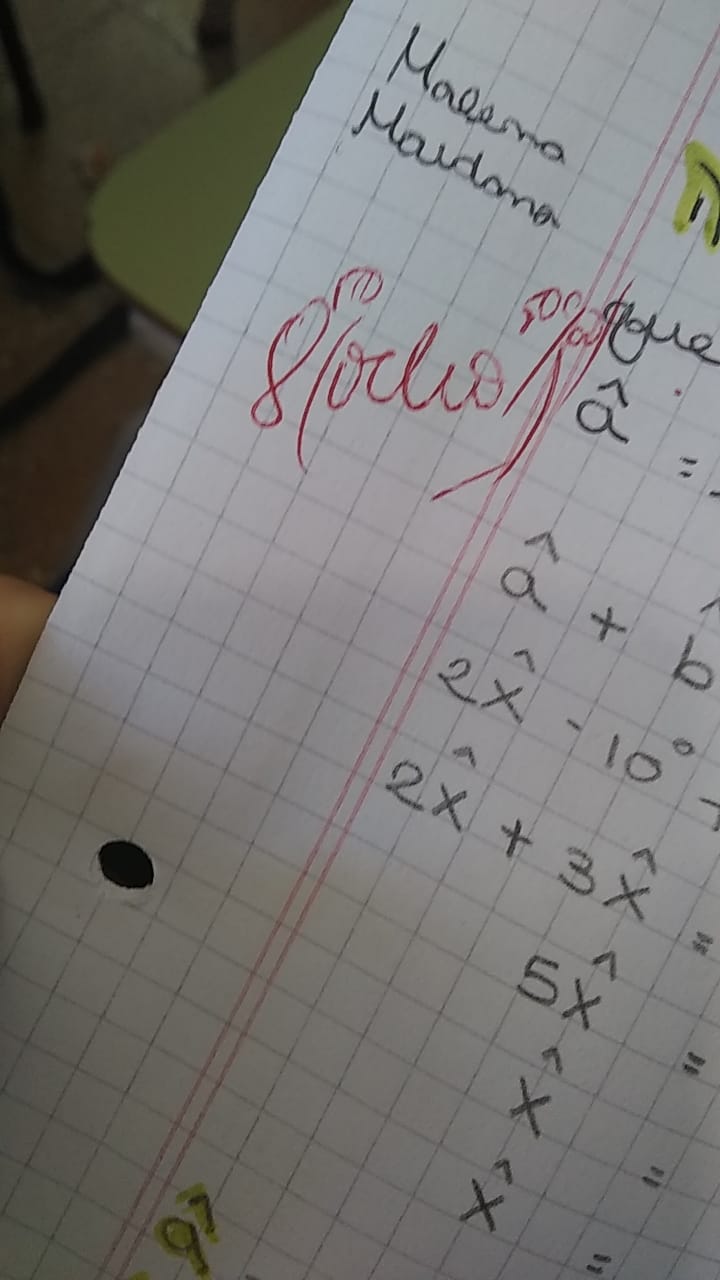 Malena
Maidana
8 (ocho)
que
â =
â + b̂
2x̂ - 10° +
2x̂ + 3x̂ =
5x̂ =
x̂ =
x̂ =